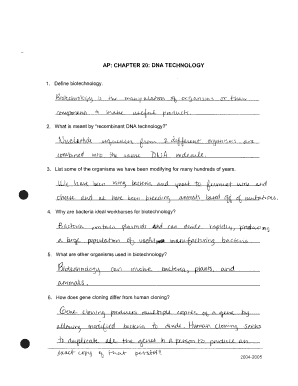 AP: CHAPTER 20: DNA TECHNOLOGY
1. Define biotechnology.
Biotechnology is the manipulation of organisms or their
components to make useful products.
2. What is meant by "recombinant DNA technology?"
Nucleotide sequences from 2 different organisms are
combined into the same DNA molecule.
3. List some of the organisms we have been modifying for many hundreds of years.
We have been using bacteria and yeast to ferment wine and
cheese and we have been breeding animals based off of mutations.
4. Why are bacteria ideal workhorses for biotechnology?
Bacteria contain plasmids and can divide rapidly, producing
a large population of useful manufacturing bacteria
5. What are other organisms used in biotechnology?
Biotechnology can involve bacteria, plants, and
animals.
6. How does gene cloning differ from human cloning?
Gene cloning produces multiple copies of a gene by
allowing modified bacteria to divide. Human cloning seeks
to duplicate all the genes in a person to produce an
exact copy of that person.
2004-2005